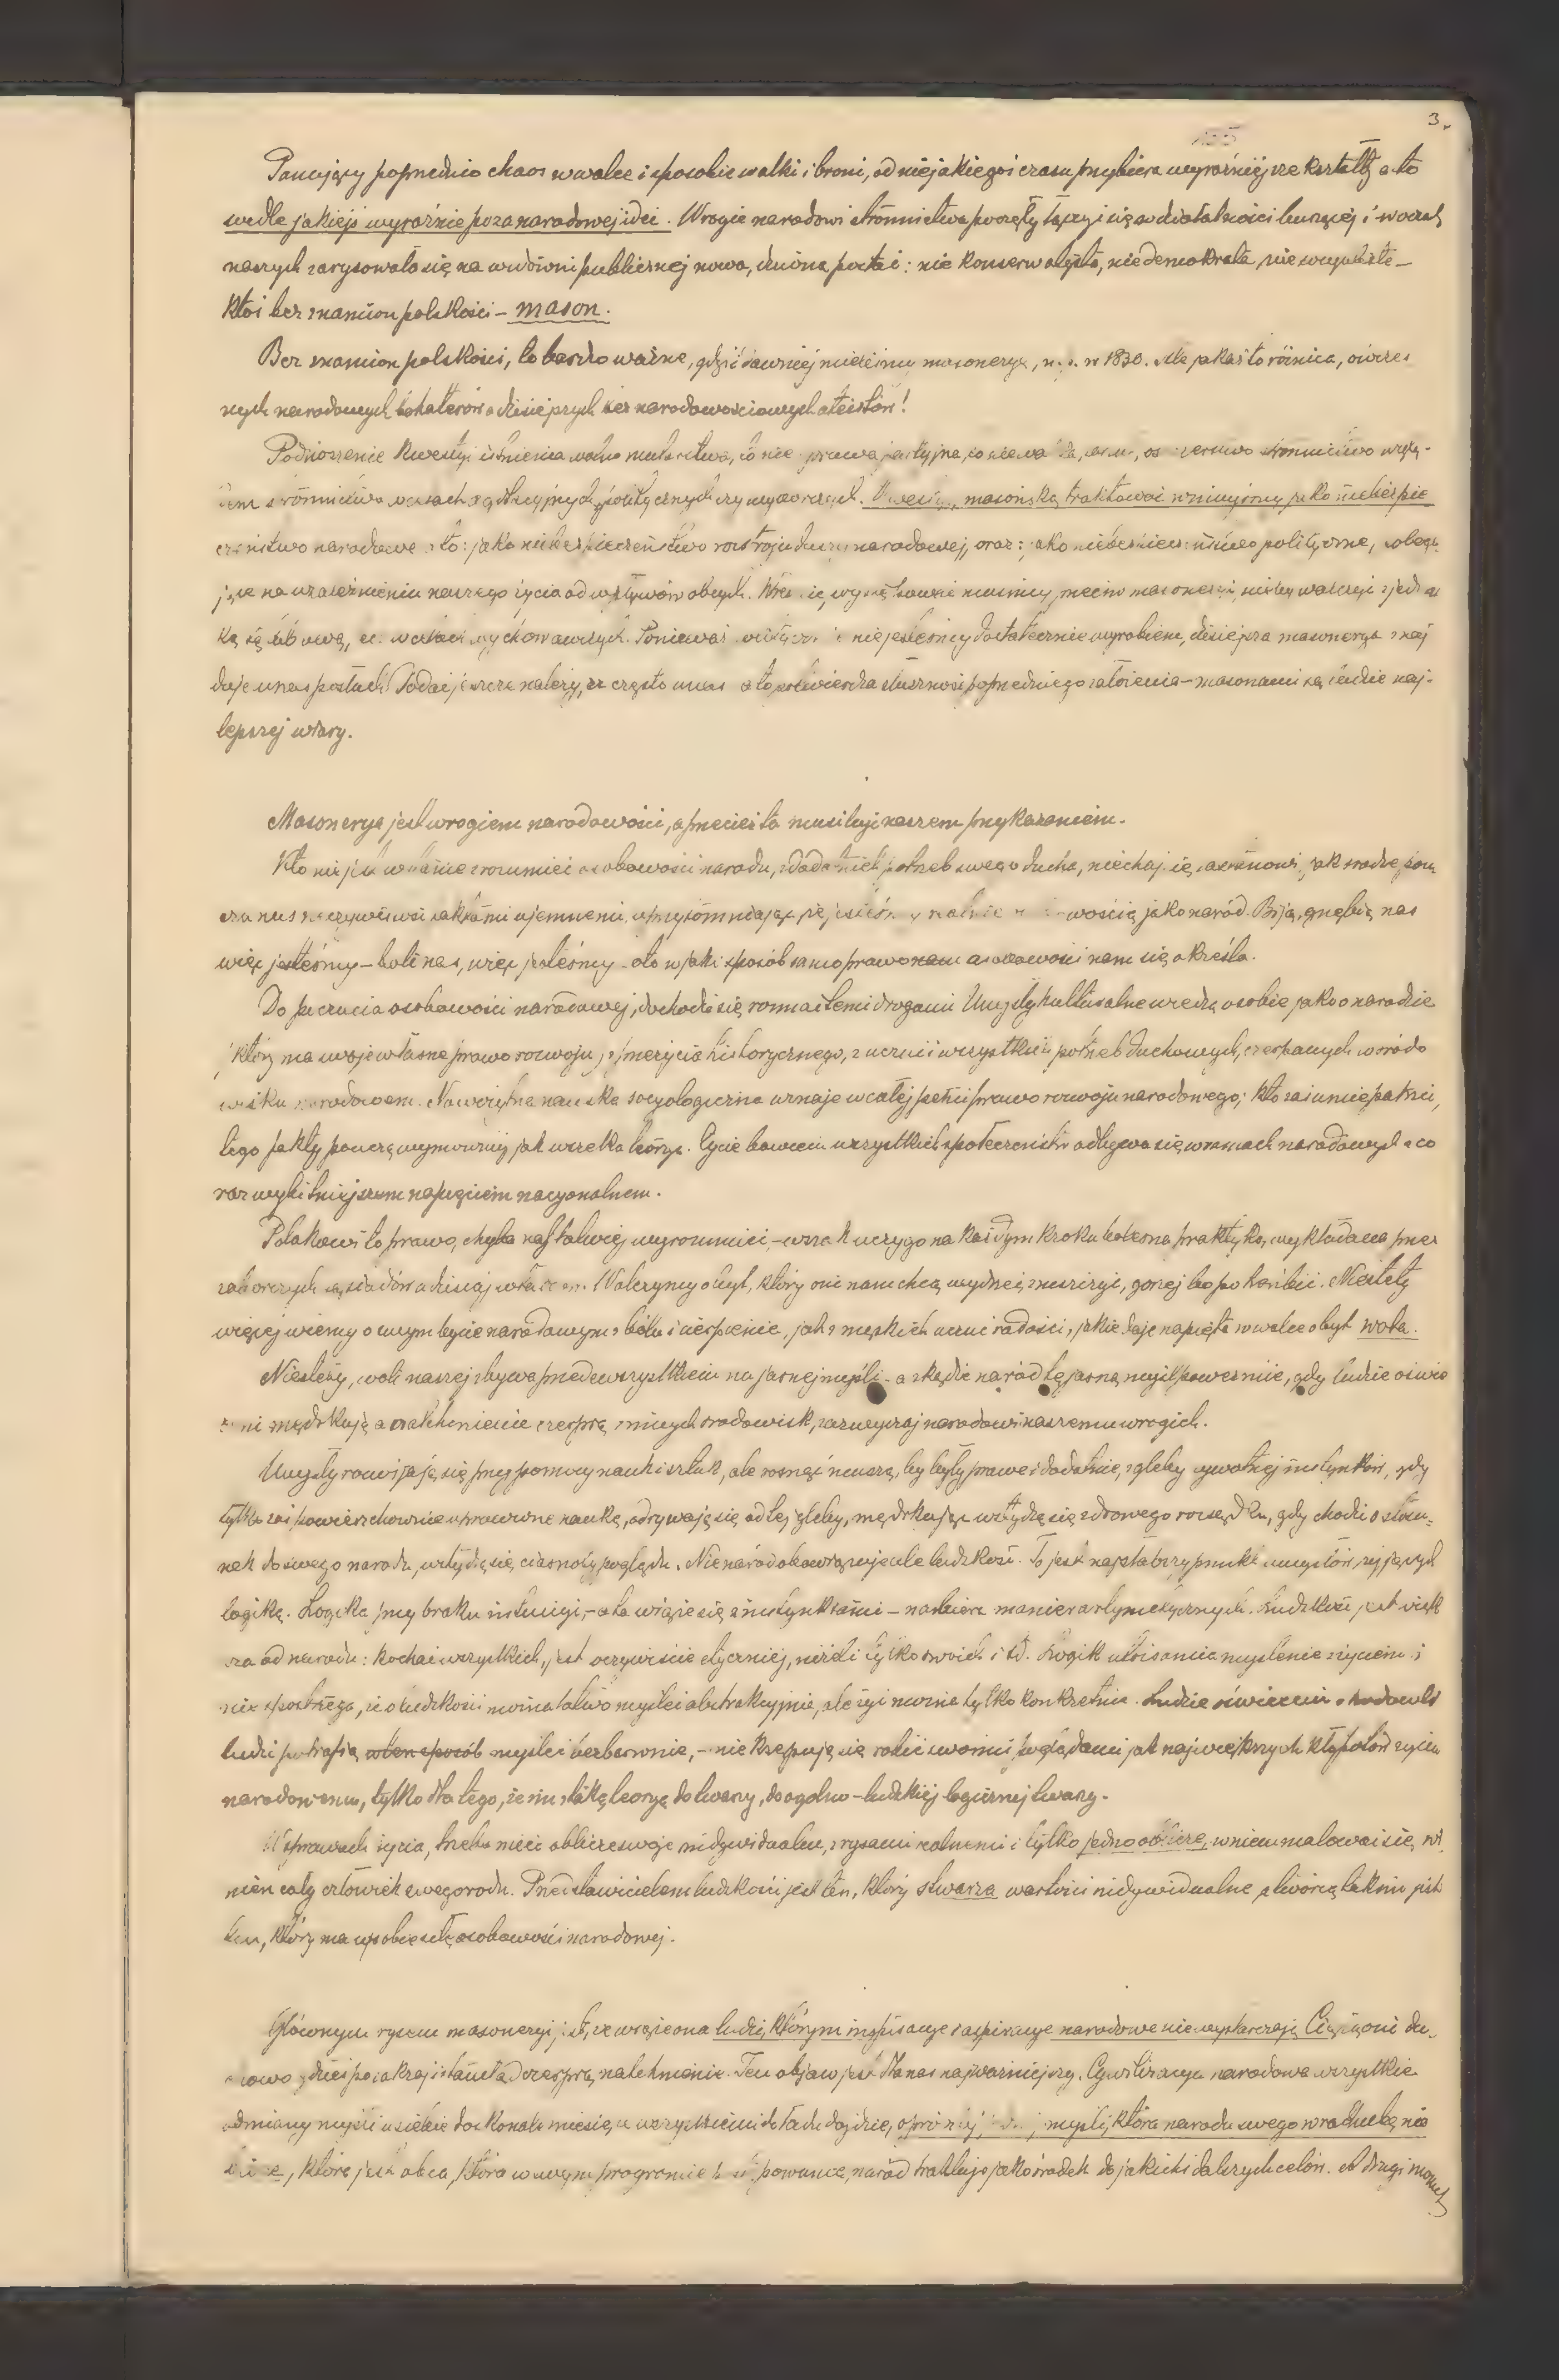 3.
Panujący poprzednio chaos w walce i sposobie walki i broni, od niejakiegoś czasu przybiera wyraźniejsze kształty a to
wedle jakiejś wyraźnie pozanarodowej idei. Wrogie narodowi stronnictwa poczęły łączyć się w działalności burzącej i w oczach
naszych zarysowała się na widowni publicznej nowa, dziwna postać: nie konserwatysta, nie demokrata, nie socyalista –
ktoś bez znamion polskości – mason.
Bez znamion polskości, to bardzo ważne, gdyż i dawniej mieliśmy masonerye, n.p. w 1830. Ale jakaś to różnica, ówczes
nych narodowych bohaterów a dzisiejszych bez narodowościowych ateistów!
Podnoszenie kwestyi istnienia wolno mularstwa, to nie sprawa partyjna, to nie stronnictwo wzglę-
dem stronnictwa w czasach agitacyjnych, politycznych czy wyborczych. masońską traktować winniśmy jako niebezpie
czeństwo narodowe a to: jako niebezpieczeństwo rozstroju duszy narodowej, oraz: jako niebezpieczeństwo polityczne, polega
jące na uzależnieniu naszego życia od wpływów obcych. musimy przeciw masoneryi, niżby walczyć z jednost
ką się w czasach wychowawczych. Ponieważ nie jesteśmy dostatecznie wyrobieni, dzisiejsza masonerya znaj
duje u nas posłuch. Dodać jeszcze należy, że często u nas a to potwierdza słuszność poprzedniego założenia – masonami są ludzie naj-
lepszej wiary.
Masonerya jest wrogiem narodowości, a przecież ta musi być naszem przykazaniem.
Kto nie jest w stanie zrozumieć osobowości narodu, z dodatnich potrzeb swego ducha, niechaj się zastanowi, jak srodze poucza
cza nas rzeczywistość faktami ujemnemi, uprzytomniając że jesteśmy realnie jako naród. Biją, gnębią nas
więc jesteśmy – boli nas, więc jesteśmy – oto w jaki sposób samo prawo nam osobowości nam się określa.
Do poczucia osobowości narodowej, dochodzi się rozmaitemi drogami. Umysły kulturalne wiedzą o sobie jako o narodzie
który ma swoje własne prawo rozwoju z przeżycia historycznego, z uczuć i wszystkich potrzeb duchowych, czerpanych w środo
wisku narodowem. Nowożytna nauka socyologiczna uznaje w całej pełni prawo rozwoju narodowego; kto zaś umie patrzeć,
tego fakty pouczą wymowniej jak wszelka teorya. Życie bowiem wszystkich społeczeństw odbywa się w ramach narodowych z co
raz wybitniejszem napięciem nacyonalnem.
Polakowi to prawo, chyba najłatwiej wyrozumieć, – wszak uczy go na każdym kroku bolesna praktyka, wykładana przez
zaborczych sąsiadów a dzisiaj władców. Walczymy o byt, który oni nam chcą wydrzeć, zniszczyć, gorzej bo pohańbić. Niestety
więcej wiemy o swym bycie narodowym z bólu i cierpienie, jak z męskich uczuć radości, jakie daje napięta w walce o byt wola.
Niestety, woli naszej zbywa przedewszystkiem na jasnej myśli – a skądże naród tę jasną myśl poweźmie, gdy ludzie oświe
ceni mędrkują a natchnienie czerpią z innych środowisk, zazwyczaj narodowi naszemu wrogich.
Umysły rozwijają się przy pomocy nauki i sztuk, ale rosnąć muszą, by były prawe i dodatnie, z gleby żywotnej instynktów, gdy
tylko zaś powierzchownie uprawione nauką, odrywają się od tej gleby, mędrkując wstydzą się zdrowego rozsądku, gdy chodzi o stosu=
nek do swego narodu, wstydzą się ciasnoty poglądu. Nie naród obowiązuje ale ludzkość. To jest najsłabszy punkt umysłów, żyjących
logiką. Logika przy braku intuicyi, – a ta wiąże się z instynktami – nabiera manier arytmetycznych. Ludzkość jest więk
sza od narodu: kochać wszystkich, jest oczywiście etyczniej, niżeli tylko swoich i t.d. Logik utożsamia myślenie z życiem i
nie spostrzega, że o ludzkości można łatwo myśleć abstrakcyjnie, ale żyć można tylko konkretnie. Ludzie oświeceni
ludzi potrafią w ten sposób myśleć bezbarwnie, – nie krępują się robić swoimi poglądami jak największych kłopotów życiu
narodowemu, tylko dla tego, że im taką teoryę do twarzy, do ogólno – ludzkiej logicznej twarzy.
W sprawach życia, trzeba mieć oblicze swoje indywidualne, z rysami realnemi i tylko jedno oblicze, w niem malować się wi
nien cały człowiek swego rodu. Przedstawicielem ludzkości jest ten, który stwarza wartości indywidualne a twórcą takim jest
ten, który ma w sobie siłę osobowości narodowej.
Głównym rysem masoneryi jest, że wiąże ona ludzi, którym inspiracye i aspiracye narodowe nie wystarczają. Ciążą oni du-
chowo gdzieś poza kraj i stamtąd czerpią natchnienie. Ten objaw jest dla nas najważniejszy. Cywilizacya narodowa wszystkie
odmiany myśli u siebie doskonale mieści, z wszystkiemi do ładu dojdzie, oprócz myśli, która narodu swego w rachubę nie
bierze, która jest obca, która w swym programie naród traktuje jako środek do jakichś dalszych celów. A drugi moment